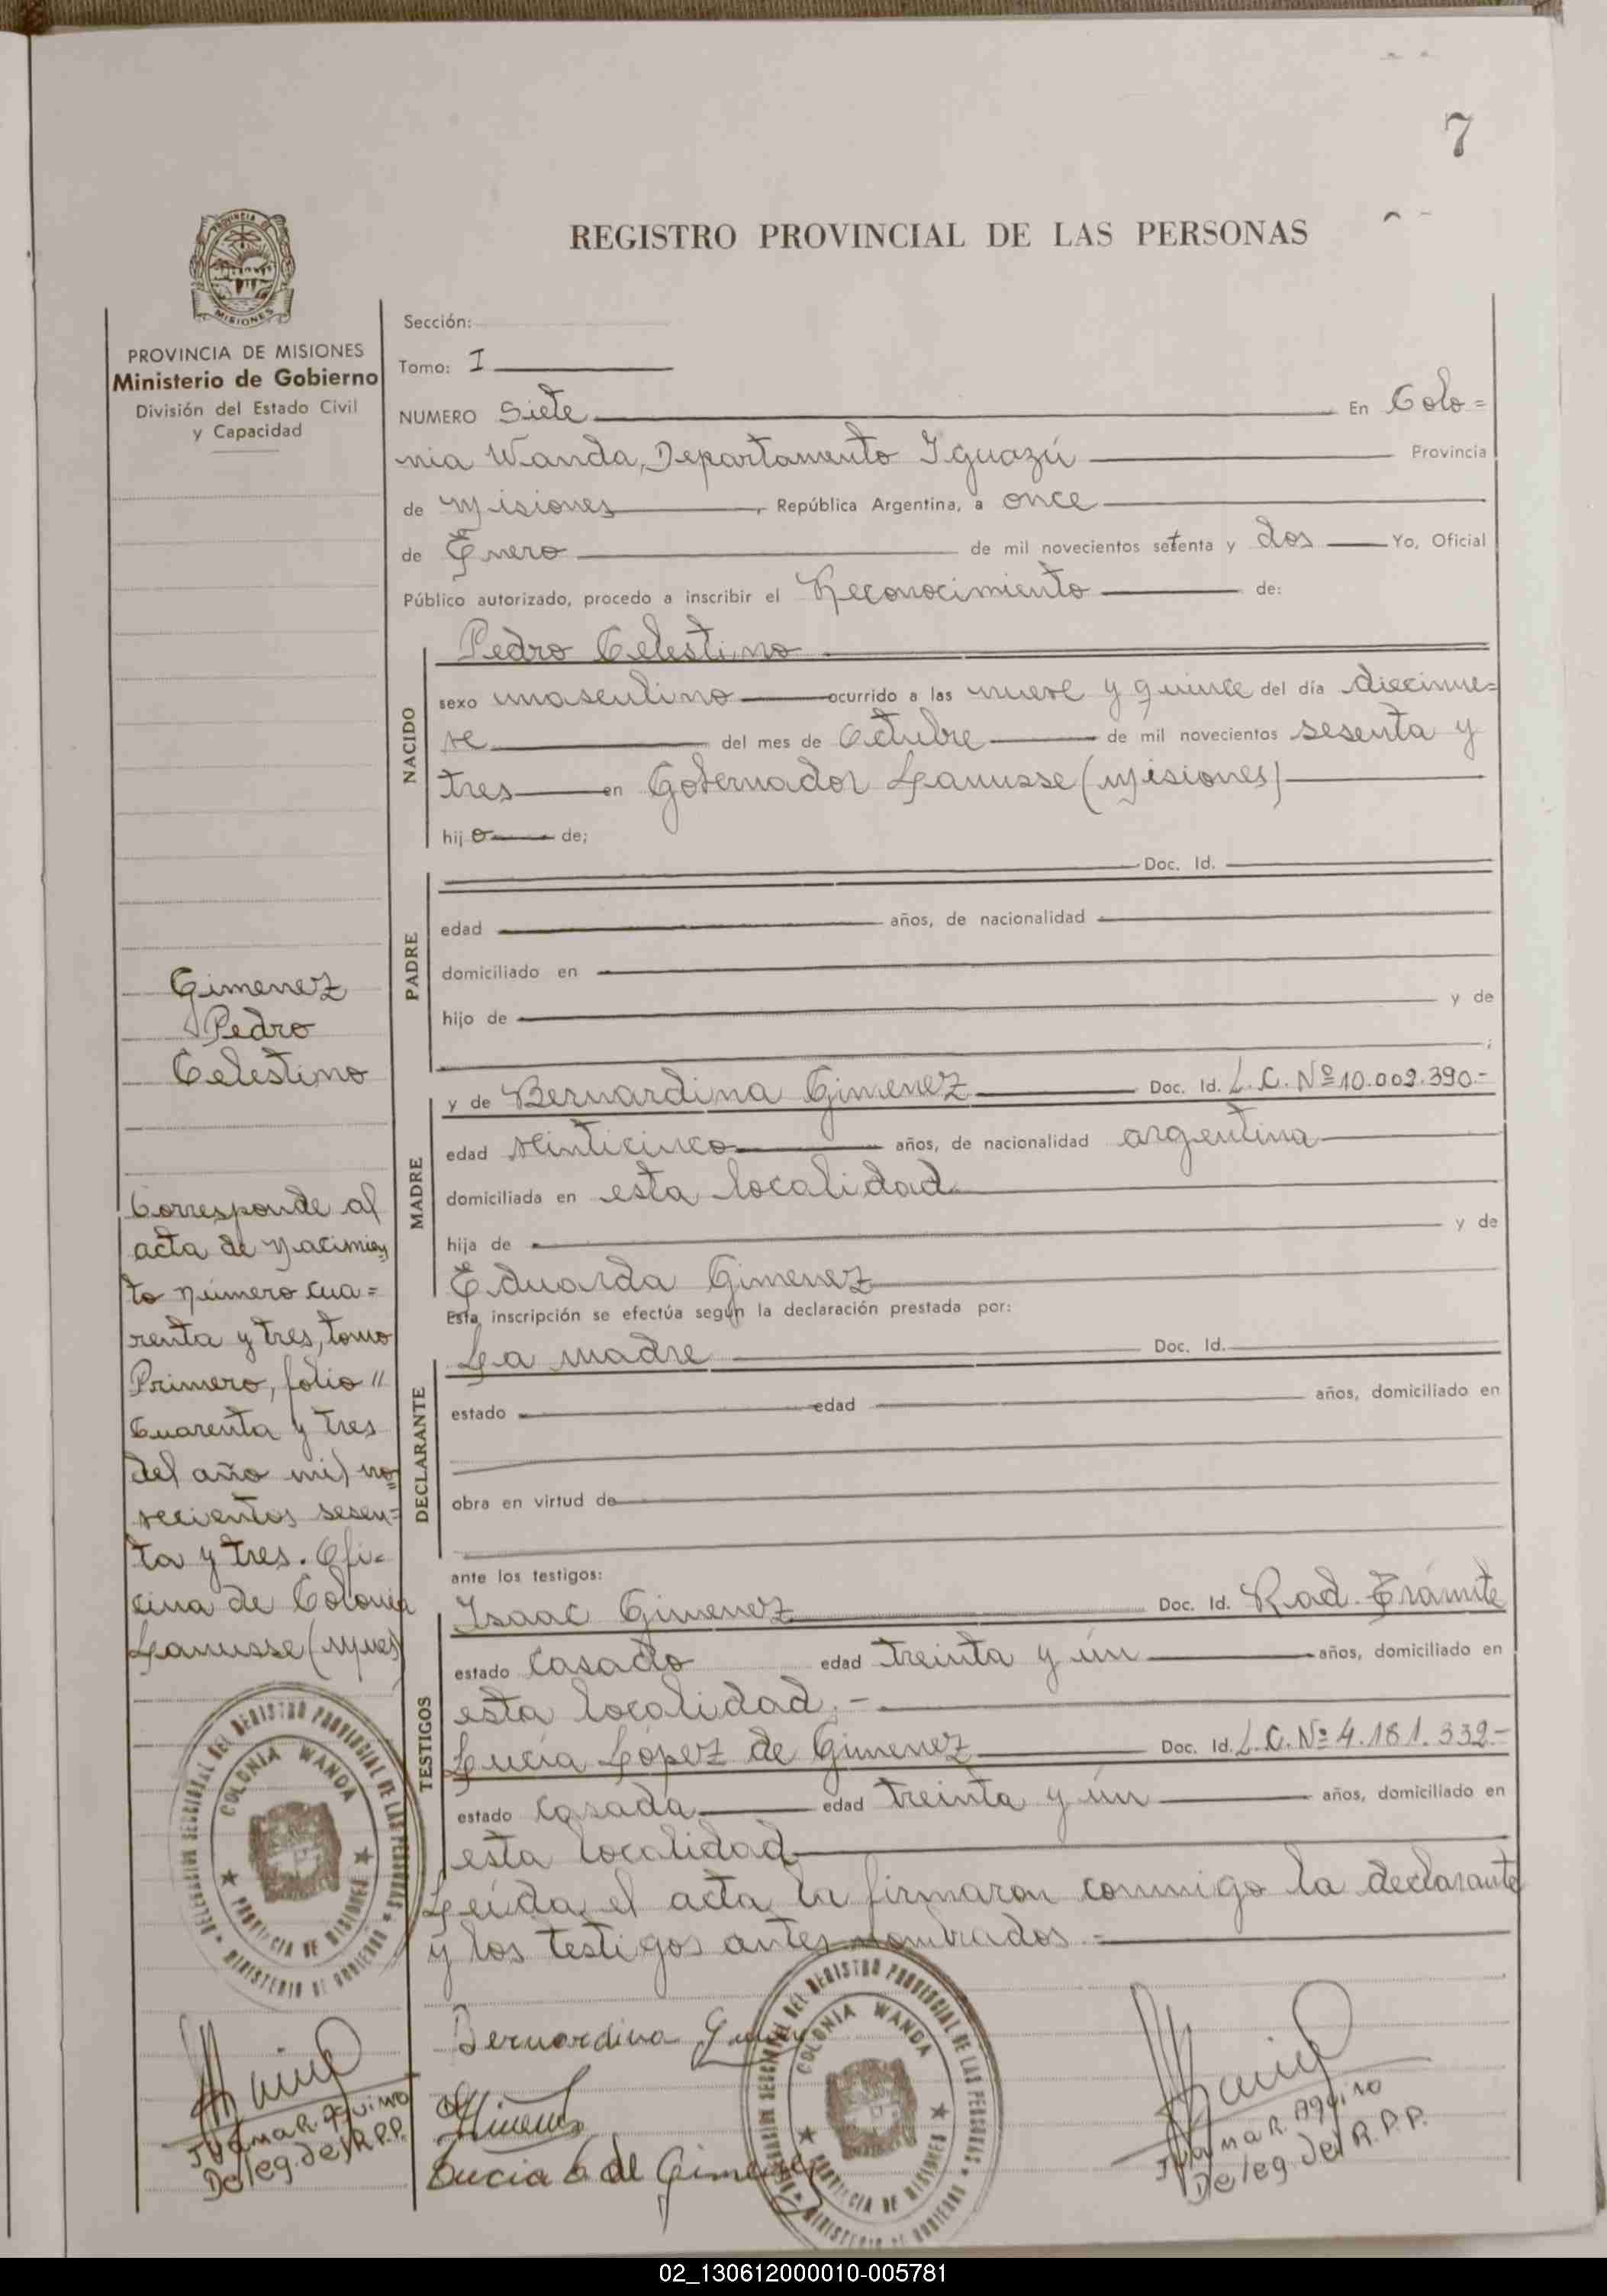 7
REGISTRO PROVINCIAL DE LAS PERSONAS
PROVINCIA
MISIONES
PROVINCIA DE MISIONES
Ministerio de Gobierno
División del Estado Civil
y Capacidad
Sección:
Tomo: I
NUMERO Siete En Colo=
nia Wanda, Departamento Iguazú Provincia
de Misiones, República Argentina, a once
de Enero de mil novecientos setenta y dos Yo, Oficial
Público autorizado, procedo a inscribir el Reconocimiento de:
NACIDO
Pedro Celestino
sexo masculino ocurrido a las nueve y quince del día diecinue=
ve del mes de Octubre de mil novecientos sesenta y
tres en Gobernador Lanusse (Misiones)
hijo de;
PADRE
Doc. Id.
edad años, de nacionalidad
domiciliado en
hijo de y de
;
MADRE
y de Bernardina Gimenez Doc. Id. L.C. Nº 10.002.390.-
edad veinticinco años, de nacionalidad argentina
domiciliada en esta localidad
hija de y de
Eduarda Gimenez
Esta inscripción se efectúa según la declaración prestada por:
DECLARANTE
La madre Doc. Id.
estado edad años, domiciliado en
obra en virtud de
ante los testigos:
TESTIGOS
Isaac Gimenez Doc. Id. Rad. Trámite
estado casado edad treinta y ún años, domiciliado en
esta localidad.-
Lucía López de Gimenez Doc. Id. L.C. Nº 4.181.332.-
estado casada edad treinta y ún años, domiciliado en
esta localidad
Leída el acta la firmaron conmigo la declarante
y los testigos antes nombrados.=
Gimenez
Pedro
Celestino
Corresponde al
acta de Nacimien
to número cua=
renta y tres, tomo
Primero, folio "
Cuarenta y tres
del año mil no
vecientos sesen=
ta y tres. Ofi=
cina de Colonia
Lanusse (Mnes)
DELEGACION SECCIONAL DEL REGISTRO PROVINCIAL DE LAS PERSONAS
COLONIA WANDA
PROVINCIA DE MISIONES
MINISTERIO DE GOBIERNO
Juana R. Aquino
Deleg. del R.P.P.
Bernardina
Gimenez
Lucia L de Gimenez
DELEGACION SECCIONAL DEL REGISTRO PROVINCIAL DE LAS PERSONAS
COLONIA WANDA
PROVINCIA DE MISIONES
MINISTERIO DE GOBIERNO
Juana R. Aquino
Deleg. del R.P.P.
02_130612000010-005781